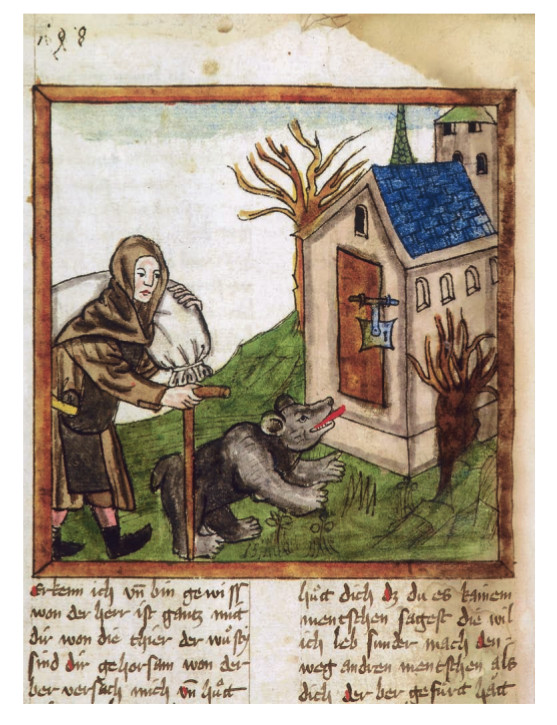 198
erkenn ich vn̄ bin gewiss
won der herr ist gantz mit
dir won die thier der wůsty
sind dir gehorsam won der
ber versach mich vn̄ hůtt
hůtt dich dz du es kainem
mentschen sagest die wil
ich leb sunder mach den-
weg andren mentschen als
dich der ber gefůrt hatt